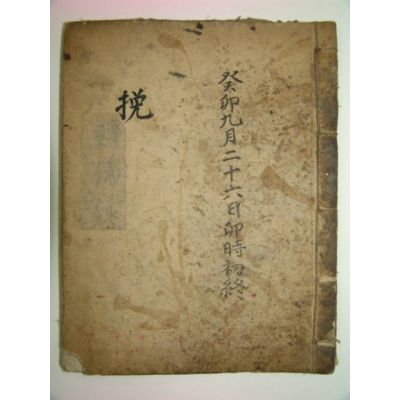 癸卯九月二十六日卯時初終
挽